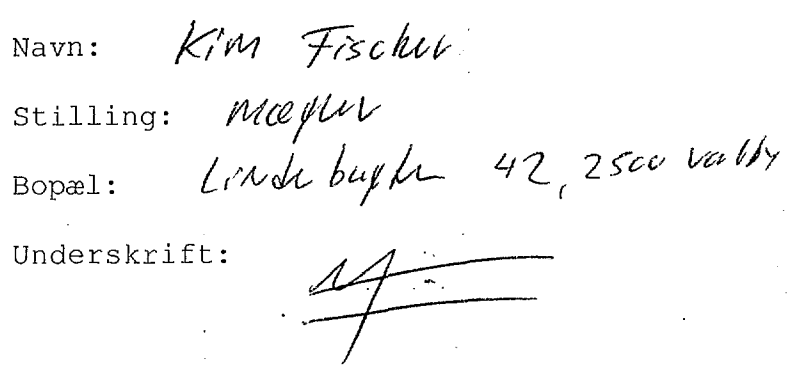 Navn: Kim Fischer
Stilling: Mægler
Bopæl: Lindebugten 42, 2500 Valby
Underskrift: